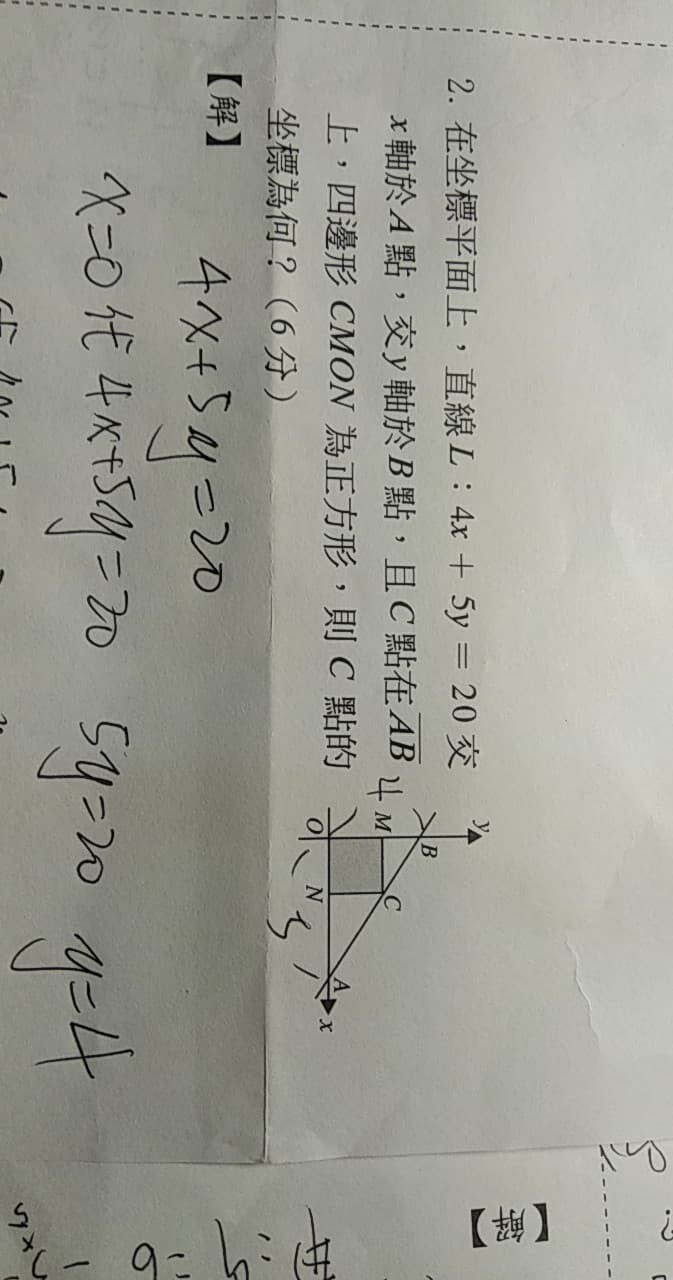 2. 在坐標平面上，直線 L：4x + 5y = 20 交
x 軸於 A 點，交 y 軸於 B 點，且 C 點在 \overline{AB}
上，四邊形 CMON 為正方形，則 C 點的
坐標為何？（6 分）
y
B
4
M
C
O
N
A
x
5
【解】
4x+5y=20
x=0代4x+5y=20 5y=20 y=4
【解】